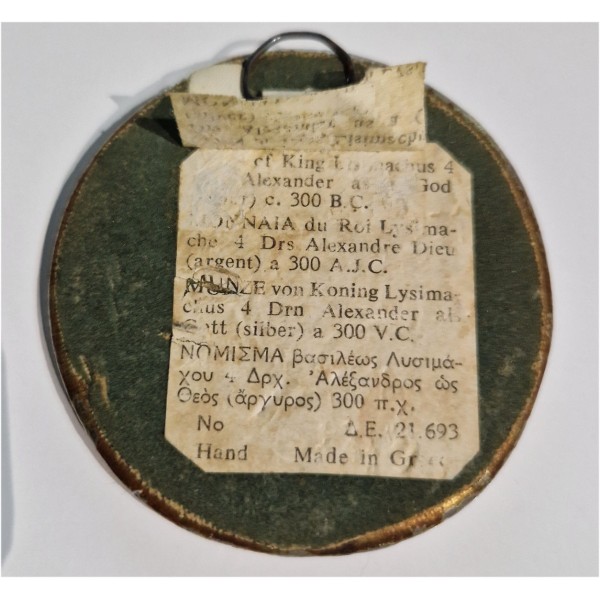 of King Lysimachus 4
Alexander as God
c. 300 B.C.
MONNAIA du Roi Lysima-
che 4 Drs Alexandre Dieu
(argent) a 300 A.J.C.
MUNZE von Koning Lysima-
chus 4 Drn Alexander al
Gott (silber) a 300 V.C.
ΝΟΜΙΣΜΑ βασιλέως Λυσιμά-
χου 4 Δρχ. Ἀλέξανδρος ὡς
Θεὸς (ἄργυρος) 300 π.χ.
No Δ.Ε. 21.693
Hand Made in Gr